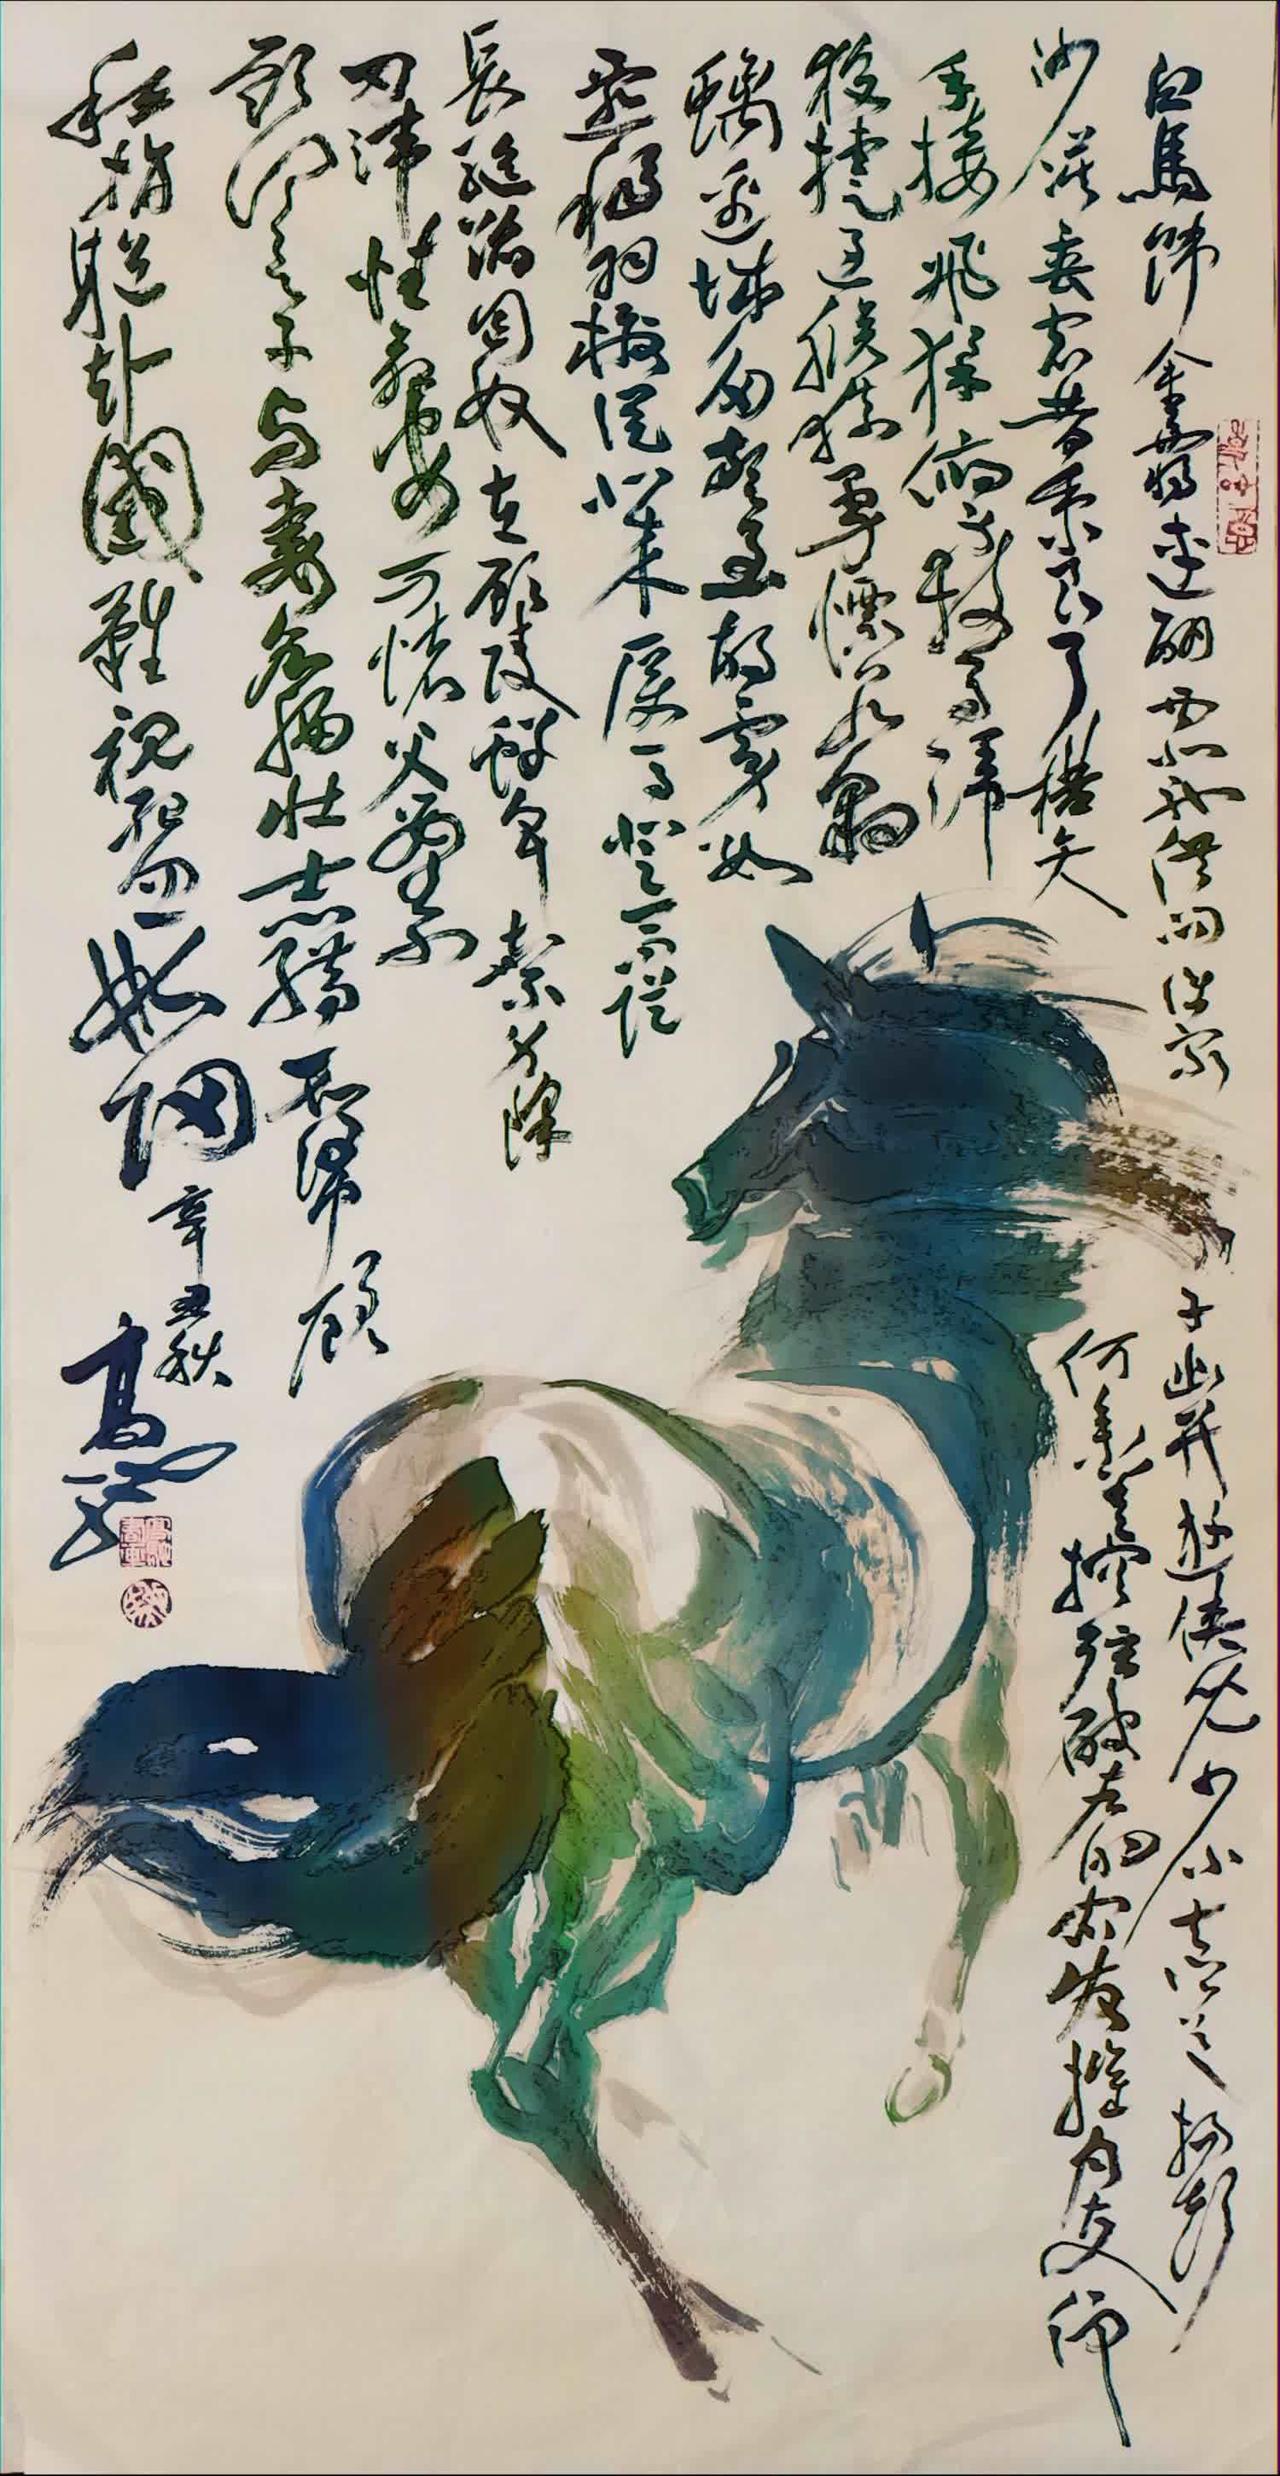 白馬飾金羈連翩西北馳借問誰家
子幽并遊俠兒少小去鄉邑揚聲
沙漠垂宿昔秉良弓楛矢
何參差控弦破左的右發摧月支仰
手接飛猱俯身散馬蹄
狡捷過猴猿勇剽若豹
螭邊城多警急胡虜數
遷移羽檄從北來厲馬登高堤
長驅蹈匈奴左顧陵鮮卑棄身鋒
刃端性命安可懷父母且不
顧何言子與妻名編壯士籍不得中顧
私捐軀赴國難視死忽如歸
辛丑秋
高